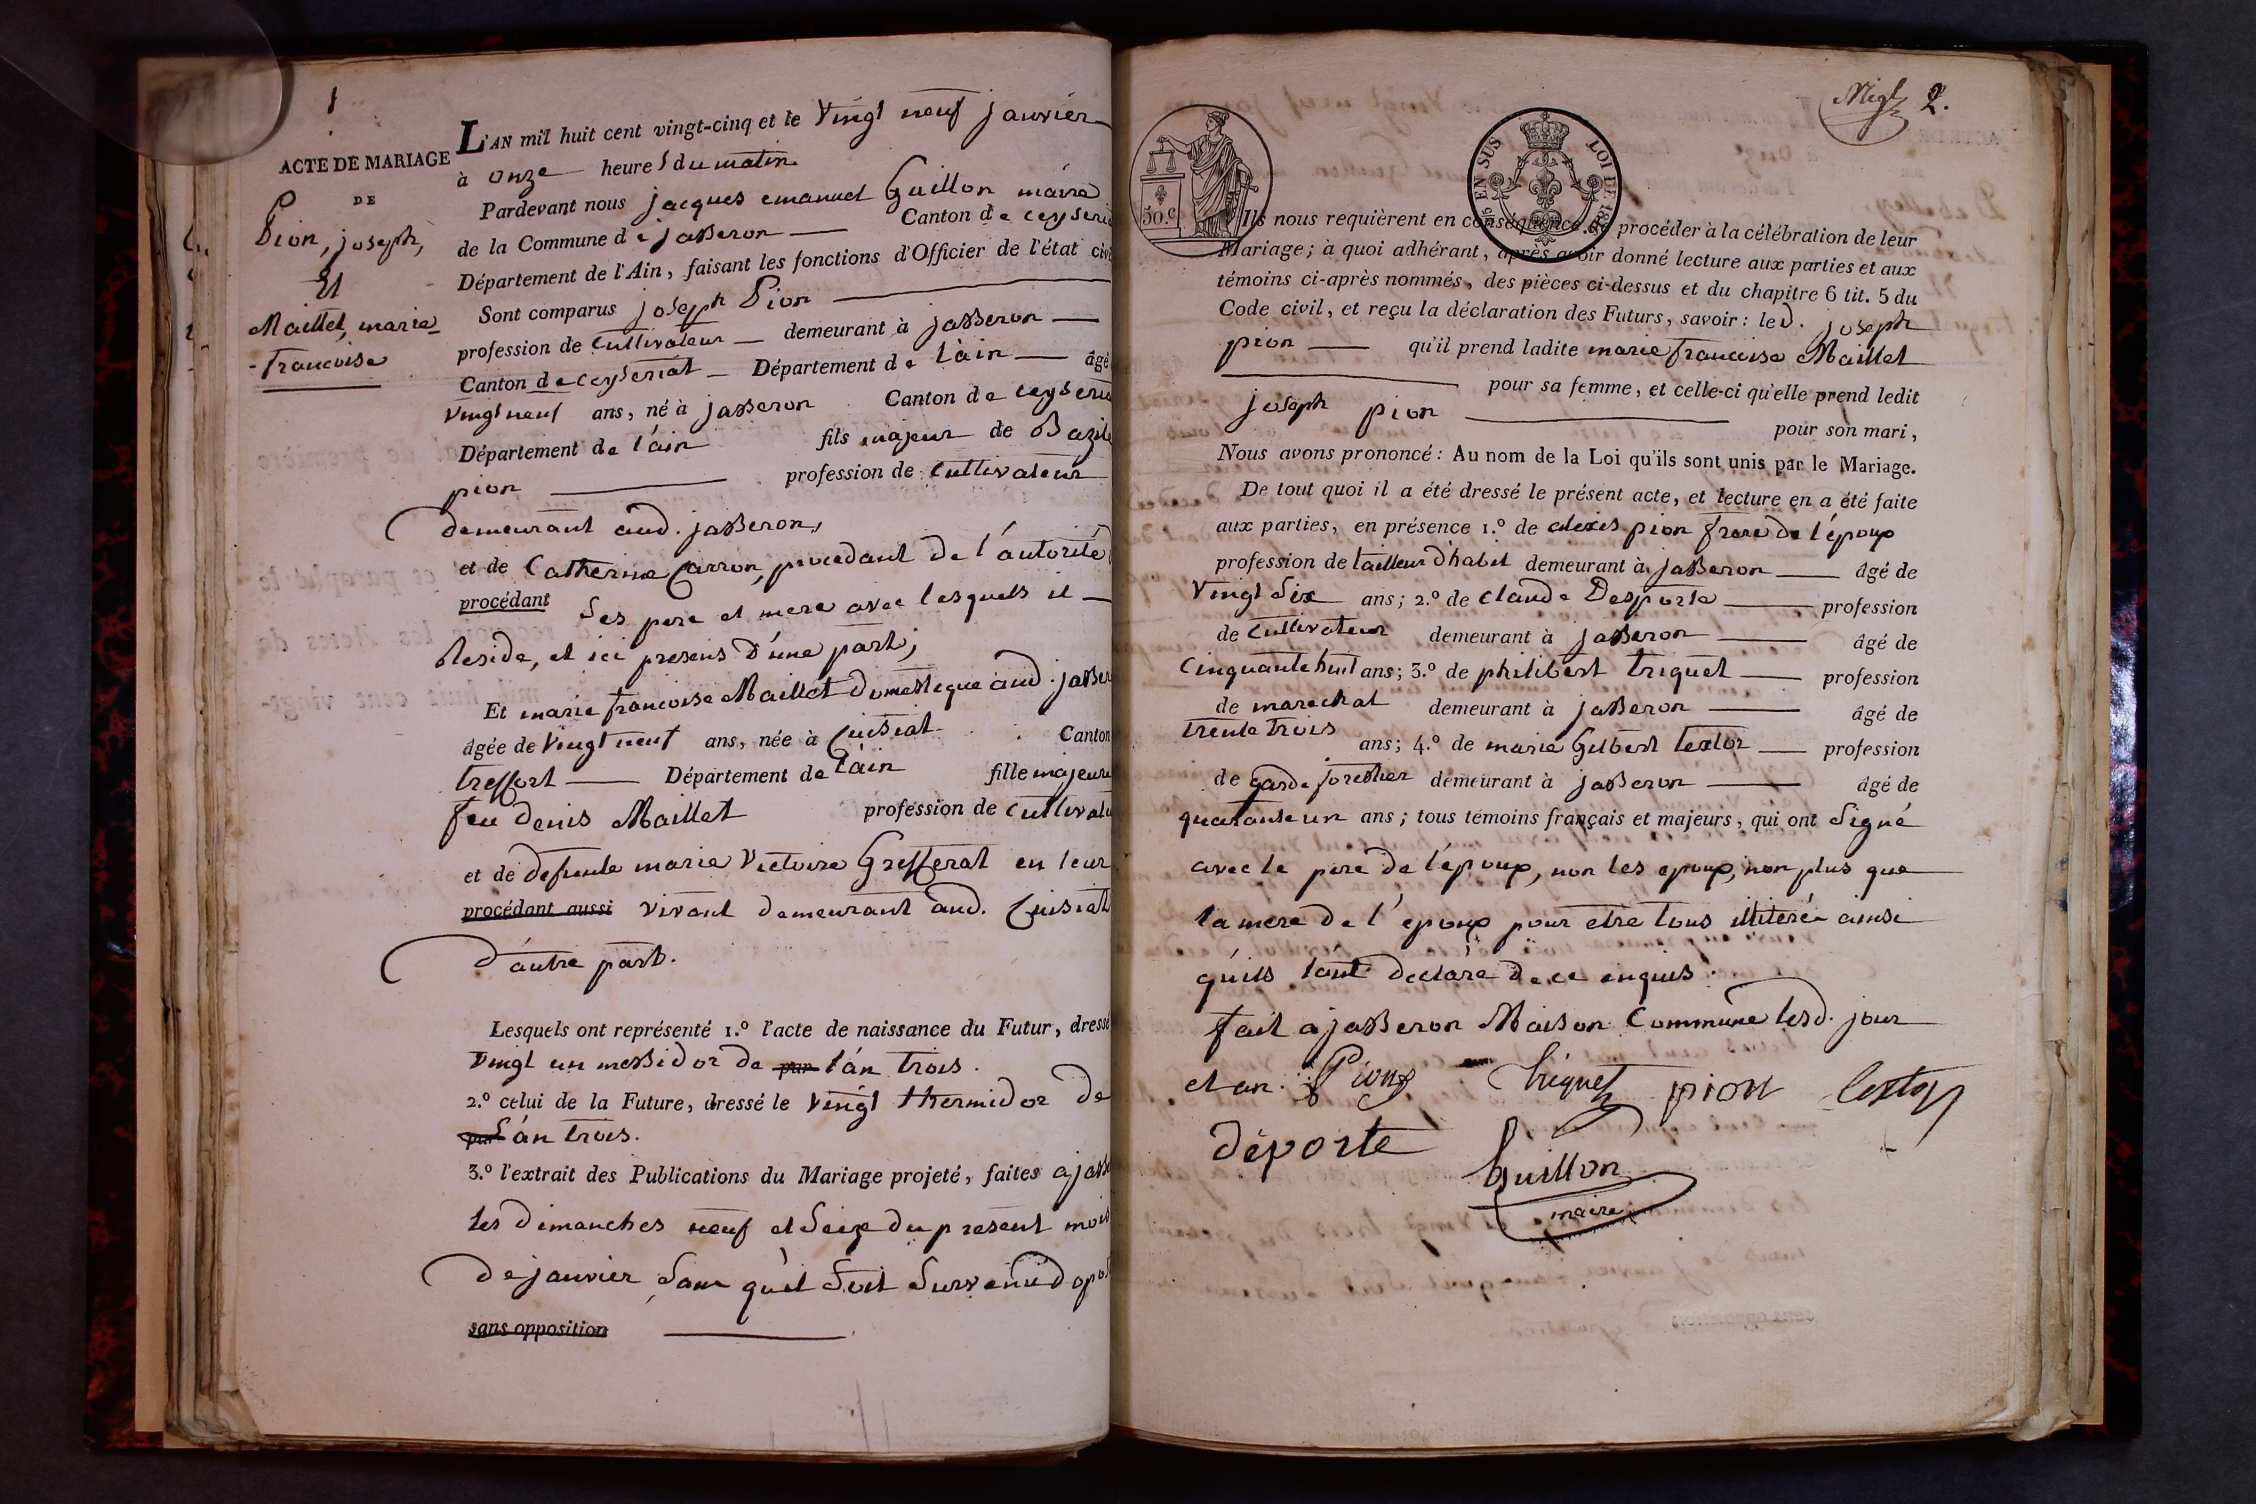 1
ACTE DE MARIAGE
DE
Pion, joseph,
Et
Maillet, marie
-francoise
L'AN mil huit cent vingt-cinq et le Vingt neuf janvier
à onze heures du matin
Pardevant nous jacques emanuel Guillon maire
de la Commune de jasseron Canton de ceyseria
Département de l'Ain, faisant les fonctions d'Officier de l'état civi
Sont comparus joseph Pion
profession de Cultivateur demeurant à jasseron
Canton de ceyseriat Département de l'ain âgé
Vingt neuf ans, né à jasseron Canton de ceyseria
Département de l'ain fils majeur de Bazile
pion profession de Cultivateur
demeurant aud. jasseron,
et de Catherine Carron, procedant de l'autorité
procédant Ses pere et mere avec lesquels il
Reside, et ici presens d'une part;
Et marie francoise Maillet domestique aud. jasser
âgée de Vingt neuf ans, née à Cuisiat Canton
treffort Département de l'ain fille majeure
feu denis Maillet profession de Cultivate
et de defunte marie Victoire Grefferat en leur
procédant aussi vivant demeurant aud. Cuisiat
d'autre part.
Lesquels ont représenté 1.º l'acte de naissance du Futur, dressé
Vingt un messidor de par l'an trois.
2.º celui de la Future, dressé le Vingt thermidor de
par l'an trois.
3.º l'extrait des Publications du Mariage projeté, faites a jasse
les dimanches neuf et Seize du present mois
de janvier Sans qu'il Soit Survenu d'opos
sans opposition
2.
50.c
EN SUS
LOI DE 181
Ils nous requièrent en conséquence de procéder à la célébration de leur
Mariage; à quoi adhérant, après avoir donné lecture aux parties et aux
témoins ci-après nommés, des pièces ci-dessus et du chapitre 6 tit. 5 du
Code civil, et reçu la déclaration des Futurs, savoir: led. joseph
pion qu'il prend ladite marie francoise Maillet
pour sa femme, et celle-ci qu'elle prend ledit
joseph pion pour son mari,
Nous avons prononcé: Au nom de la Loi qu'ils sont unis par le Mariage.
De tout quoi il a été dressé le présent acte, et lecture en a été faite
aux parties, en présence 1.º de alexis pion frere de l'époux
profession de tailleur d'habit demeurant à jasseron âgé de
Vingt Six ans; 2.º de claude Desporte profession
de Cultivateur demeurant à jasseron âgé de
Cinquante huit ans; 3.º de philibert triquet profession
de marechal demeurant à jasseron âgé de
trente trois ans; 4.º de marie Gilbert textor profession
de garde forestier demeurant à jasseron âgé de
quarante un ans; tous témoins français et majeurs, qui ont Signé
avec le pere de l'époux, non les epoux, non plus que
la mere de l'epoux pour etre tous illiteré ainsi
qu'ils l'ont declaré de ce enquis.
fait a jasseron Maison Commune lesd. jour
et an. Pion triquet pion textor
déporte
Guillon
maire